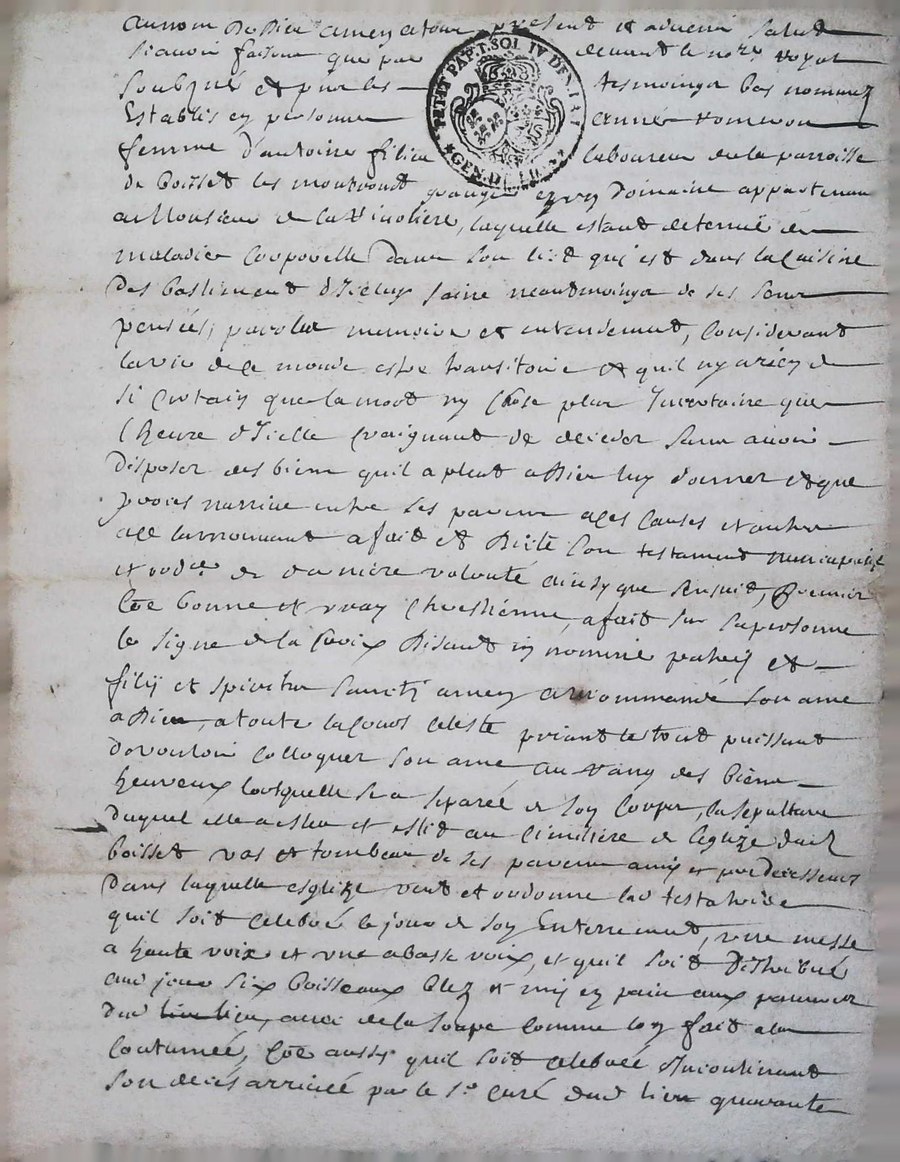 Au nom de Dieu amen a tous present et advenir salut
scavoir faisons que par devant le nore royal
soubzné et pnt les tesmoings bas nommez
Establis en personne
femme d'antoine laboureur de la parroisse
de Boisset les montrond grange en un domaine appartenan
a Monsieur de la laquelle estant detenue de
maladie corporelle dans son lict qui est dans la cuisine
des bastiment d'icelluy saine neantmoings de ses sens
pensée, parolle memoire et entendement, Considerant
la vie de ce monde estre transitoire et quil ny a rien de
si certain que la mort ny chose plus Incertaine que
l'heure d'icelle craignant de deceder sans avoir
disposer des biens quil a pleut a Dieu luy donner et que
proces narrive entre ses parens a ces causes et autres
ace la mouvant a fait et dicté son testament nuncupatif
et ordre de derniere volonté ainsy que sensuit, Premier
Cõe bonne et vray Chrestienne, a fait sur sa personne
le signe de la Croix disant in nomine patris et
filij et spiritus sancti amen a recommandé son ame
a Dieu, a toute la Cours Celeste priant le tout puissant
de vouloir colloquer son ame au rang des biens
heureux lorsquelle sera separée de son corps, la sepulture
duquel elle a esleu et eslit au Cimitiere de leglize dud
boisset vas et tombeau de ses parens amis et predecesseurs
dans laquelle esglize veut et ordonne lad testatrice
quil soit celebré le jour de son Enterrement, une messe
a haute voix et une a basse voix, et quil soit distribué
aud jour six boisseaux bled et mis en pain aux pauvres
dud lieu, avec de la soupe comme lon fait a la
coutumée, Cõe aussy quil soit celebré Incontinant
son deces arrivée par le sr curé dud lieu quarante
PETIT PAP. I. SOL IV DEN.
GEN. DE LION